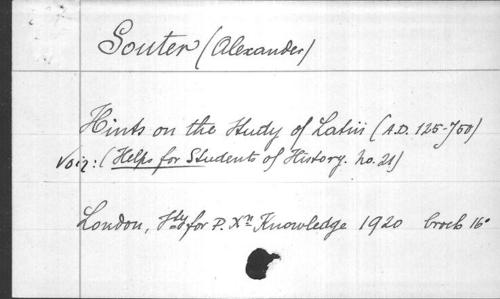 Souter (Alexander)
Hints on the Study of Latin (A.D. 125-750)
Voir: (Helps for Students of History. no. 21)
London, Sty for P. Xn Knowledge 1920 broch 16°